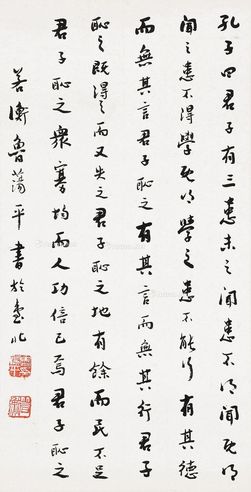 孔子曰君子有三患未之闻不得闻既得
闻之患不得学既得学之患不能行有其德
而無其言君子恥之有其言而無其行君子
恥之既得之而又失之君子恥之地有餘而民不足
君子恥之衆寡均而人功倍己焉君子恥之
善衡魯蕩平書於臺北